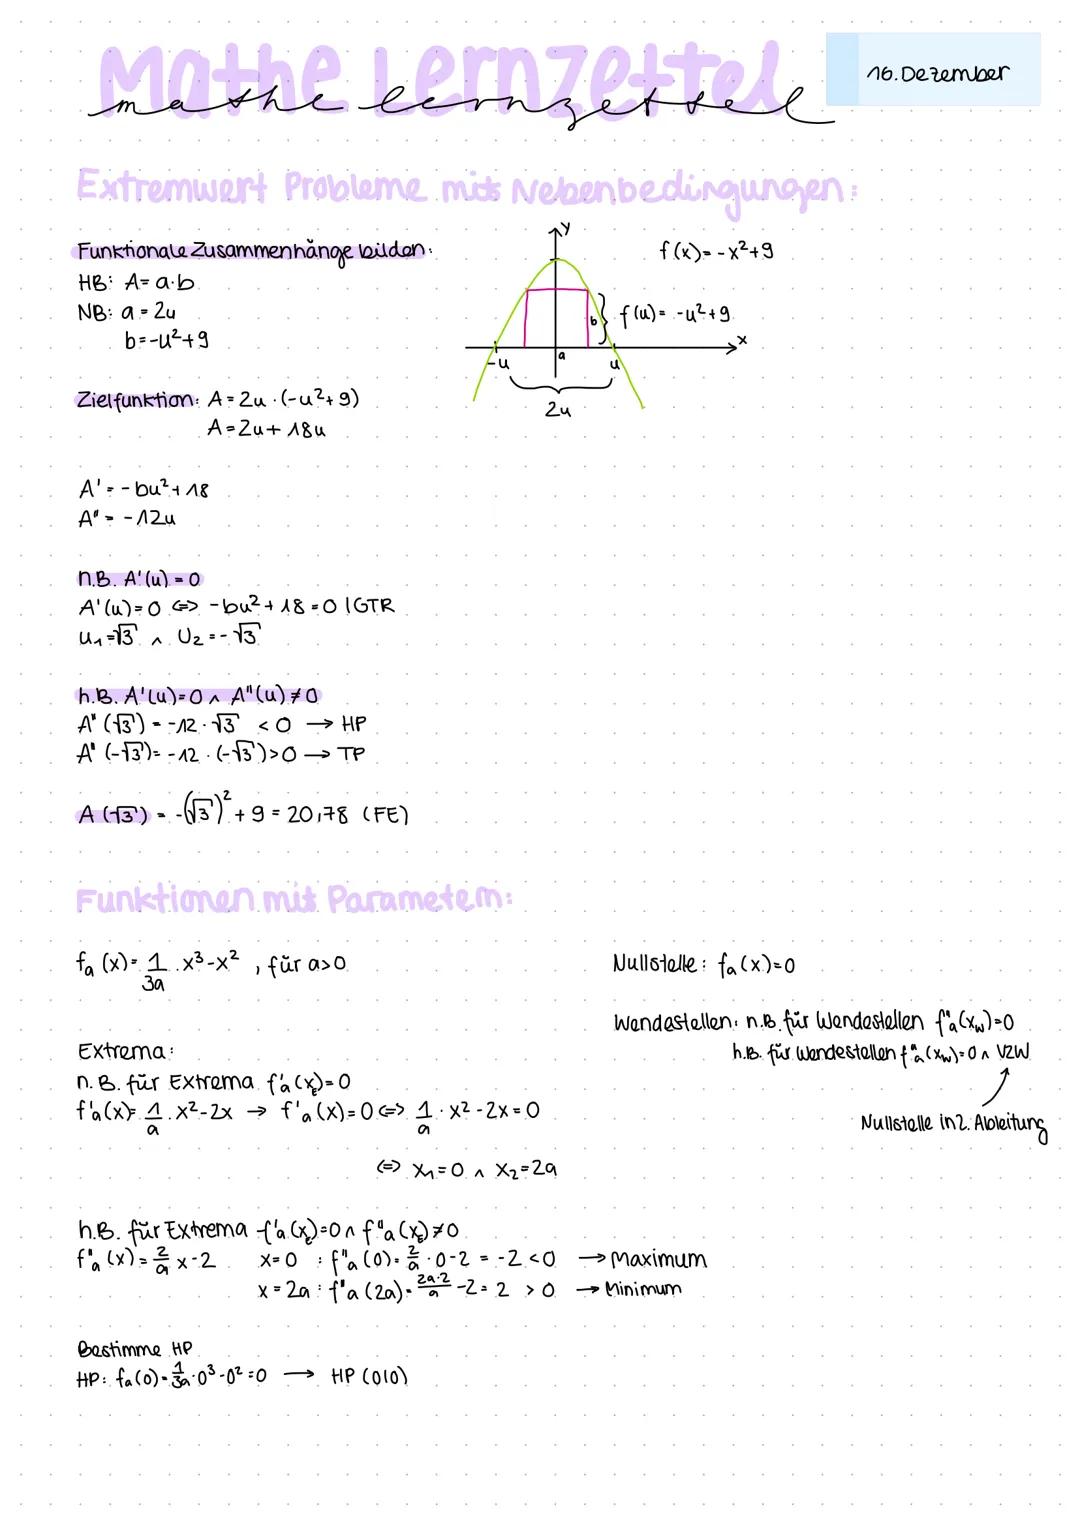 Mathe Lernzettel
mathe lernzettel
16. Dezember
Extremwert Probleme mit Nebenbedingungen:
Funktionale Zusammenhänge bilden:
HB: A = a·b
NB: a = 2u
b = -u²+9
y
f(x) = -x²+9
b
f(u) = -u²+9
x
-u
a
u
2u
Zielfunktion: A = 2u · (-u²+9)
A = 2u + 18u
A' = -bu² + 18
A'' = -12u
n.B. A'(u) = 0
A'(u) = 0 <=> -bu² + 18 = 0 | GTR
u₁ = √3 ∧ U₂ = -√3
h.B. A'(u) = 0 ∧ A''(u) ≠ 0
A''(√3) = -12 · √3 < 0 → HP
A''(-√3) = -12 · (-√3) > 0 → TP
A(√3) = -(√3)² + 9 = 20,78 (FE)
Funktionen mit Parametern:
fₐ(x) = 1/3a · x³ - x² , für a>0
Nullstelle: fₐ(x) = 0
Wendestellen: n.B. für Wendestellen f''ₐ(x_w) = 0
h.B. für Wendestellen f''ₐ(x_w) = 0 ∧ VZW
Nullstelle in 2. Ableitung
Extrema:
n. B. für Extrema f'ₐ(x_E) = 0
f'ₐ(x) = 1/a · x² - 2x → f'ₐ(x) = 0 <=> 1/a · x² - 2x = 0
<=> x₁ = 0 ∧ x₂ = 2a
h.B. für Extrema f'ₐ(x_E) = 0 ∧ f''ₐ(x_E) ≠ 0
f''ₐ(x) = 2/a x - 2 x = 0 : f''ₐ(0) = 2/a · 0 - 2 = -2 < 0 → Maximum
x = 2a : f''ₐ(2a) = 2a·2/a - 2 = 2 > 0 → Minimum
Bestimme HP
HP: fₐ(0) = 1/3a · 0³ - 0² = 0 → HP (0|0)